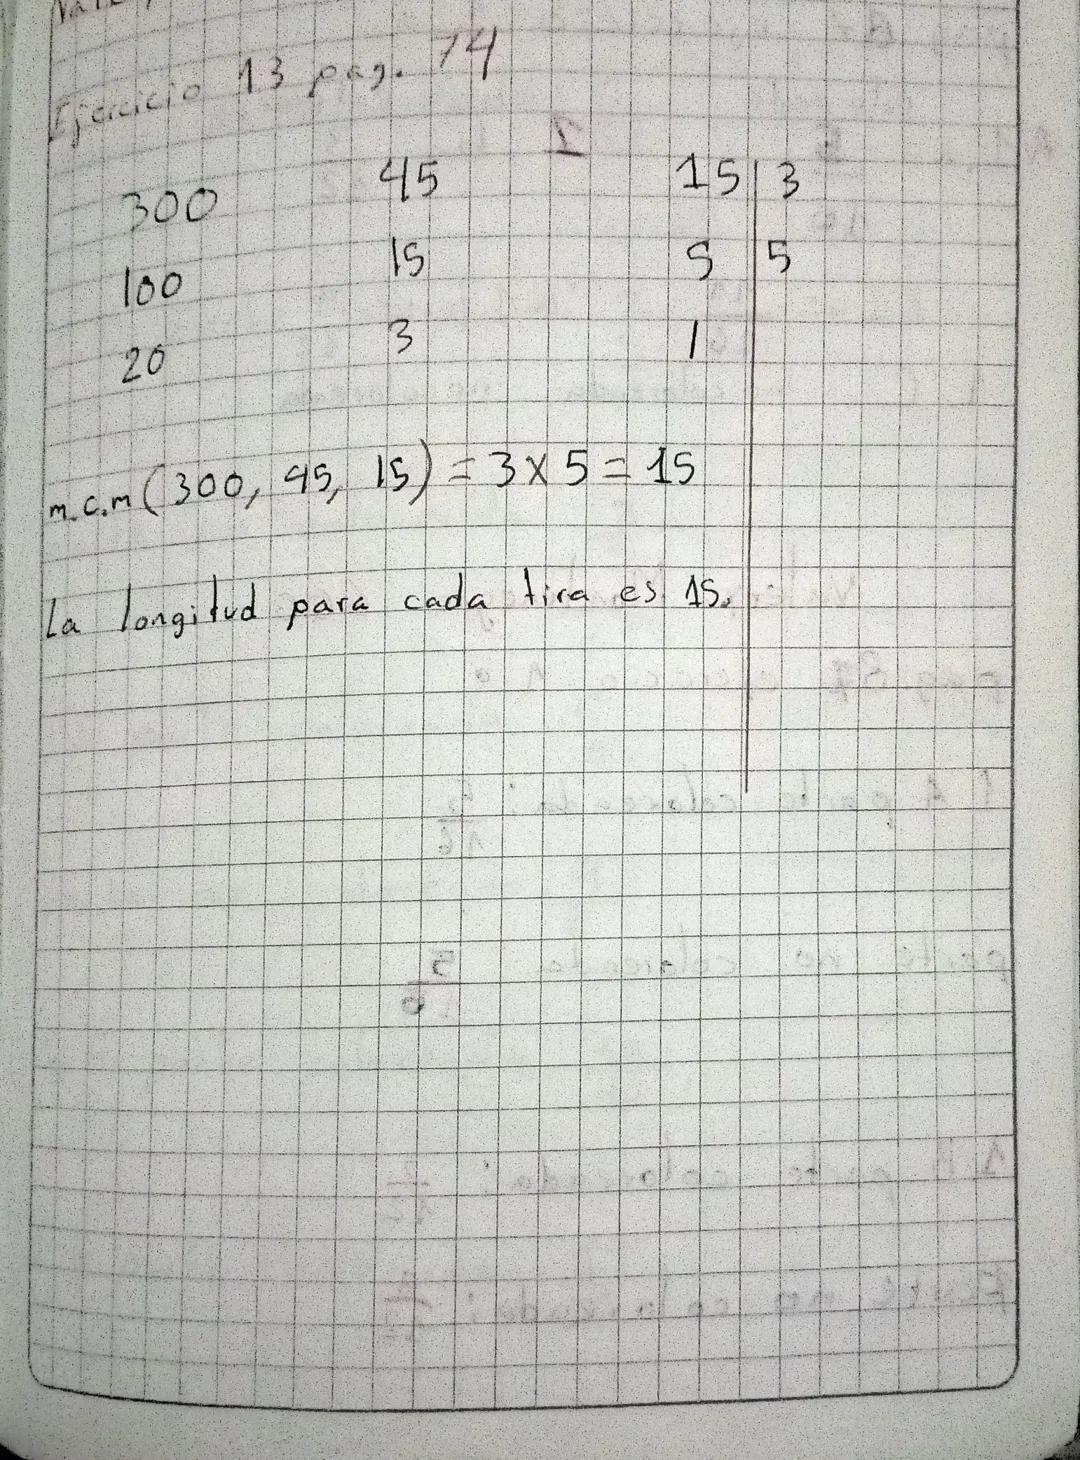 Ejercicio 13 pag. 74
300 45 15 | 3
100 15 5 | 5
20 3 1
m.c.m (300, 45, 15) = 3 x 5 = 15
La longitud para cada tira es 15.